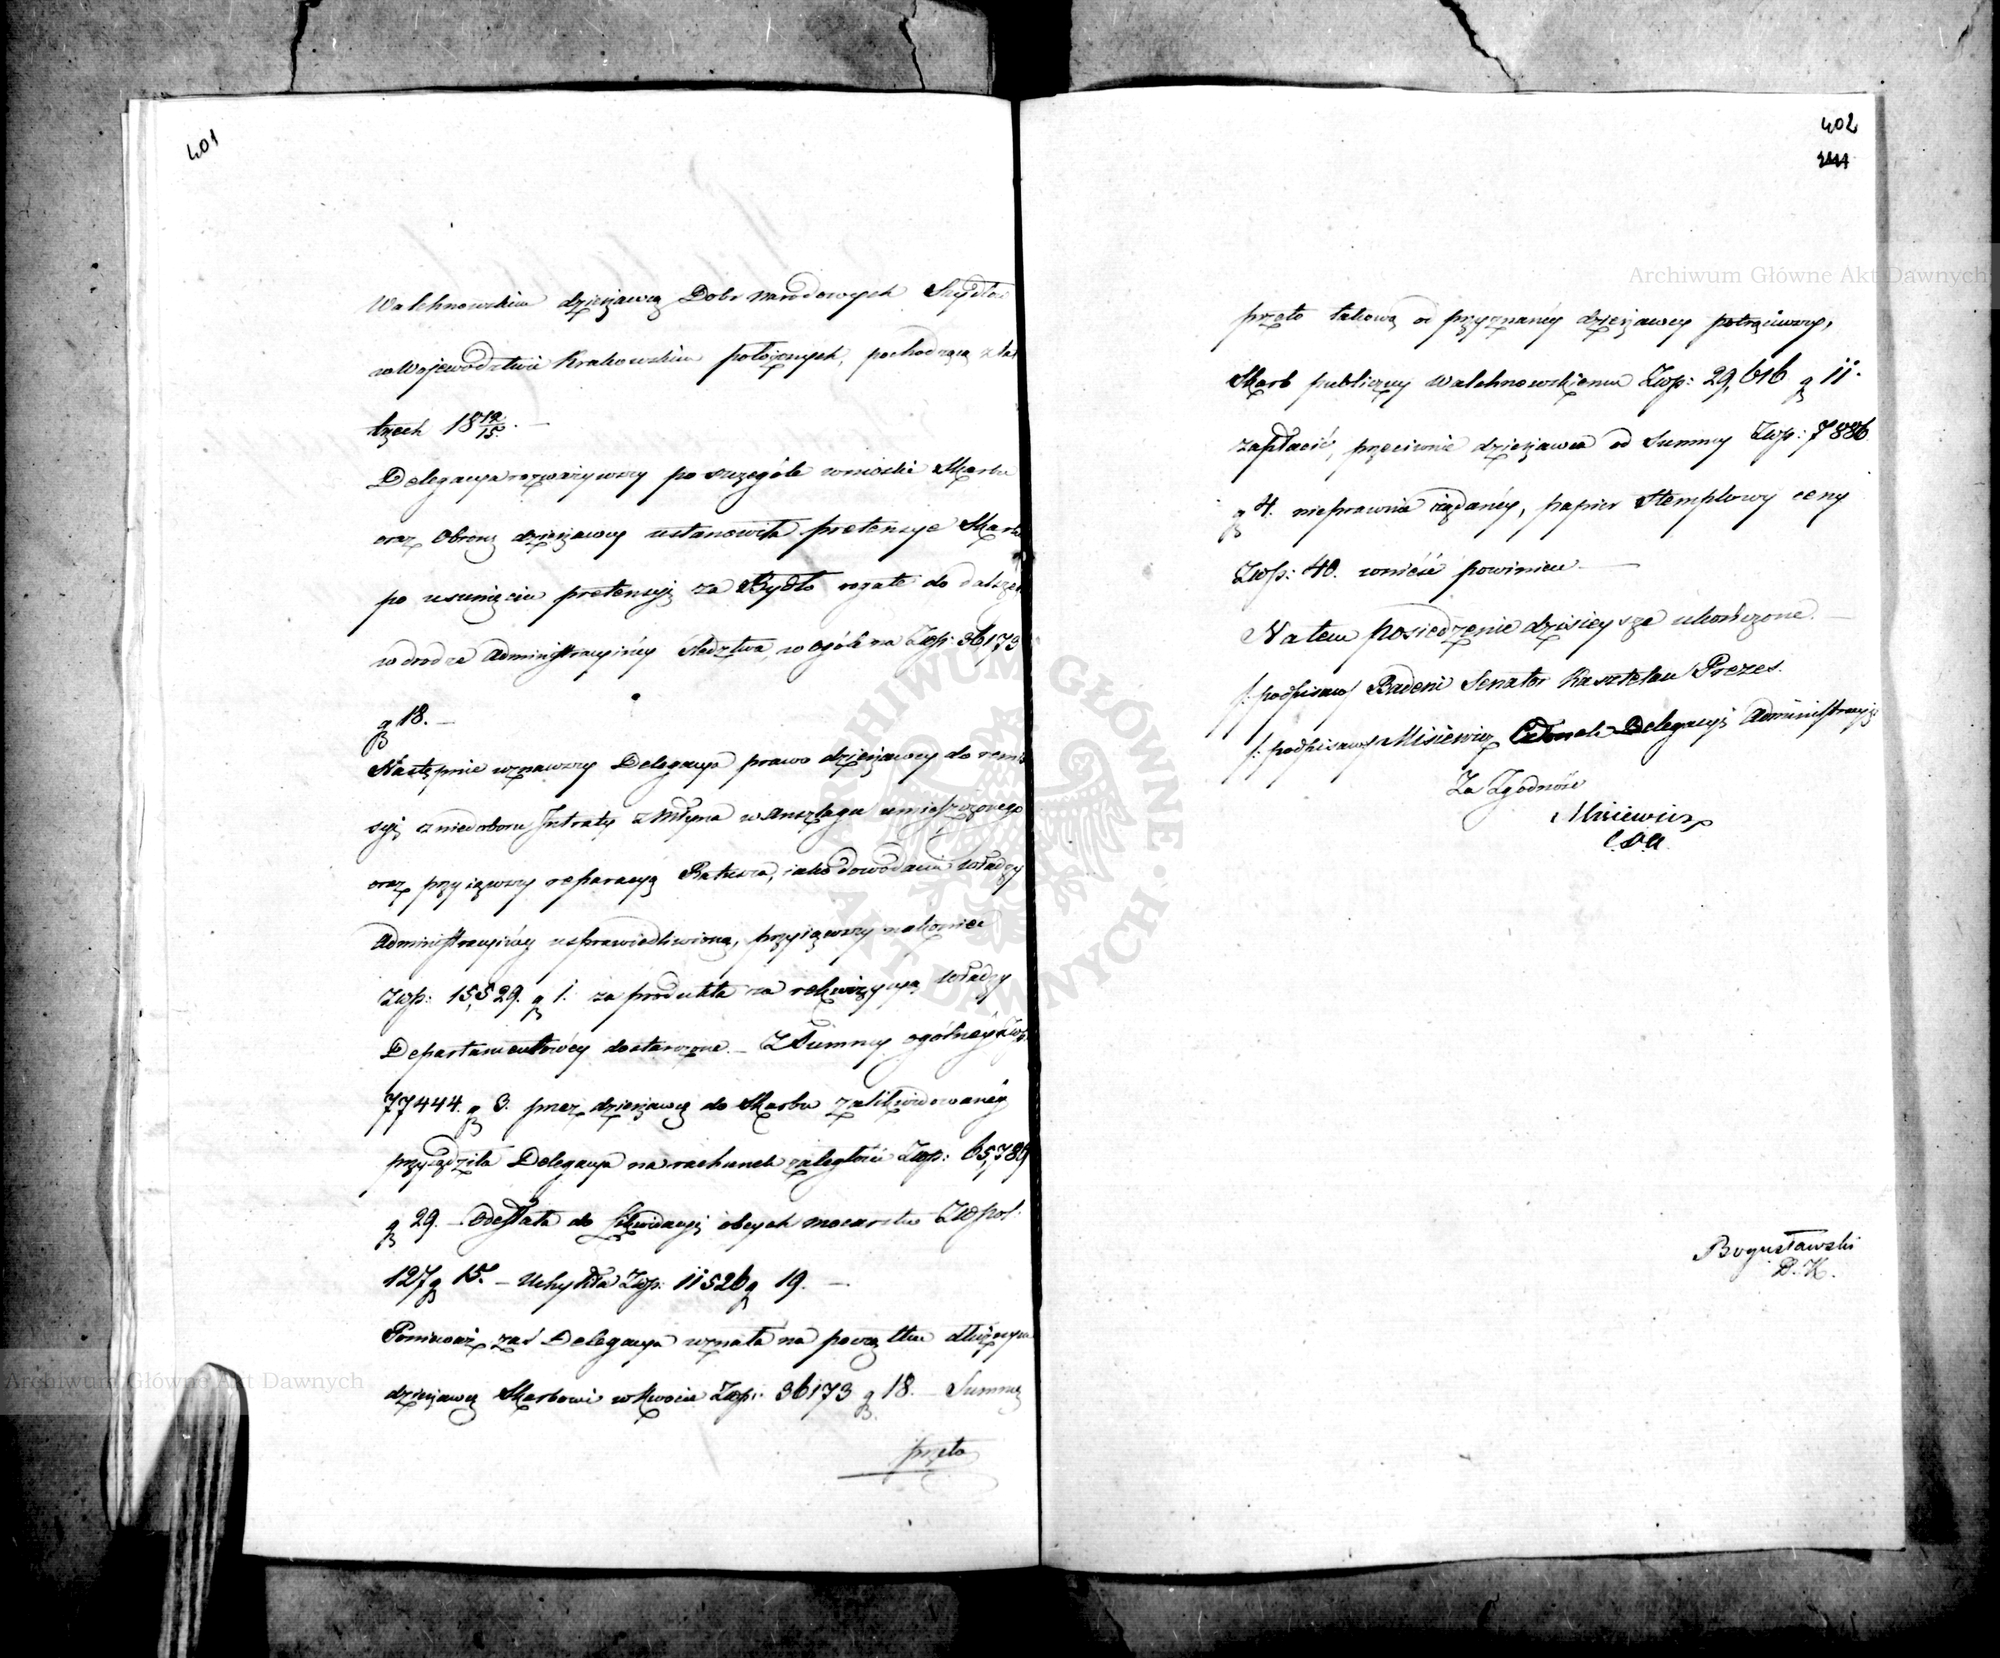 401
Walchnowskim dzierżawcą Dobr narodowych Szydłow
w Wojewodztwie Krakowskim położonych, pochodzącą z lat
trzech 18 12/15. —
Delegacya rozważywszy po szczególe wnioski Skarbu
oraz Obronę dzierżawcy ustanowiła pretensye Skarbu
po usunięciu pretensyi za Bydło rogate do dalszego
w drodze Administracyiney śledztwa, w ogóle na Zwp: 36173
g 18. —
Następnie uznawszy Delegacya prawo dzierżawcy do remis
syi z niedoboru Intraty z Młyna w Anszlagu umieszczonego
oraz przyiąwszy reparacyą Ratusza, iako dowodami władzy
Administracyiney usprawiedliwioną, przyiąwszy nakoniec
Zwp: 15,529. g 1. za produkta na rekwizycyą władzy
Departamentowey dostarczone. — Z Summy ogólney Zwp.
77444. g 3. przez dzierżawcę do Skarbu zalikwidowaney
przysądziła Delegacya na rachunek zaległości Zwp: 65,789
g 29. — Odesłała do Likwidacyi obcych mocarstw Zwpol.
127 g 15. — Uchyliła Zwp: 11526 g 19. —
Ponieważ zaś Delegacya uznała na początku dłużnym
dzierżawcę Skarbowi w kwocie Zwp: 36173 g 18. — Summę
przeto
402
przeto takową od przyznaney dzierżawcy potrąciwszy,
Skarb publiczny Walchnowskiemu Zwp: 29,616 g 11.
zapłacić, przeciwnie dzierżawca od Summy Zwp: 7886
g 4. nieprawnie żądaney, papier Stemplowy ceny
Zwp: 40. wnieść powinien —
Na tem Posiedzenie dzisieysze ukończone. —
/: podpisano/ Badeni Senator Kasztelan Prezes.
/: podpisano/ Misiewicz Członek Delegacyi Administracyi
Za Zgodność
Misiewicz
C.D.A.
Bogusławski
D. K.
Archiwum Główne Akt Dawnych
Archiwum Główne Akt Dawnych
ARCHIWUM GŁÓWNE AKT DAWNYCH